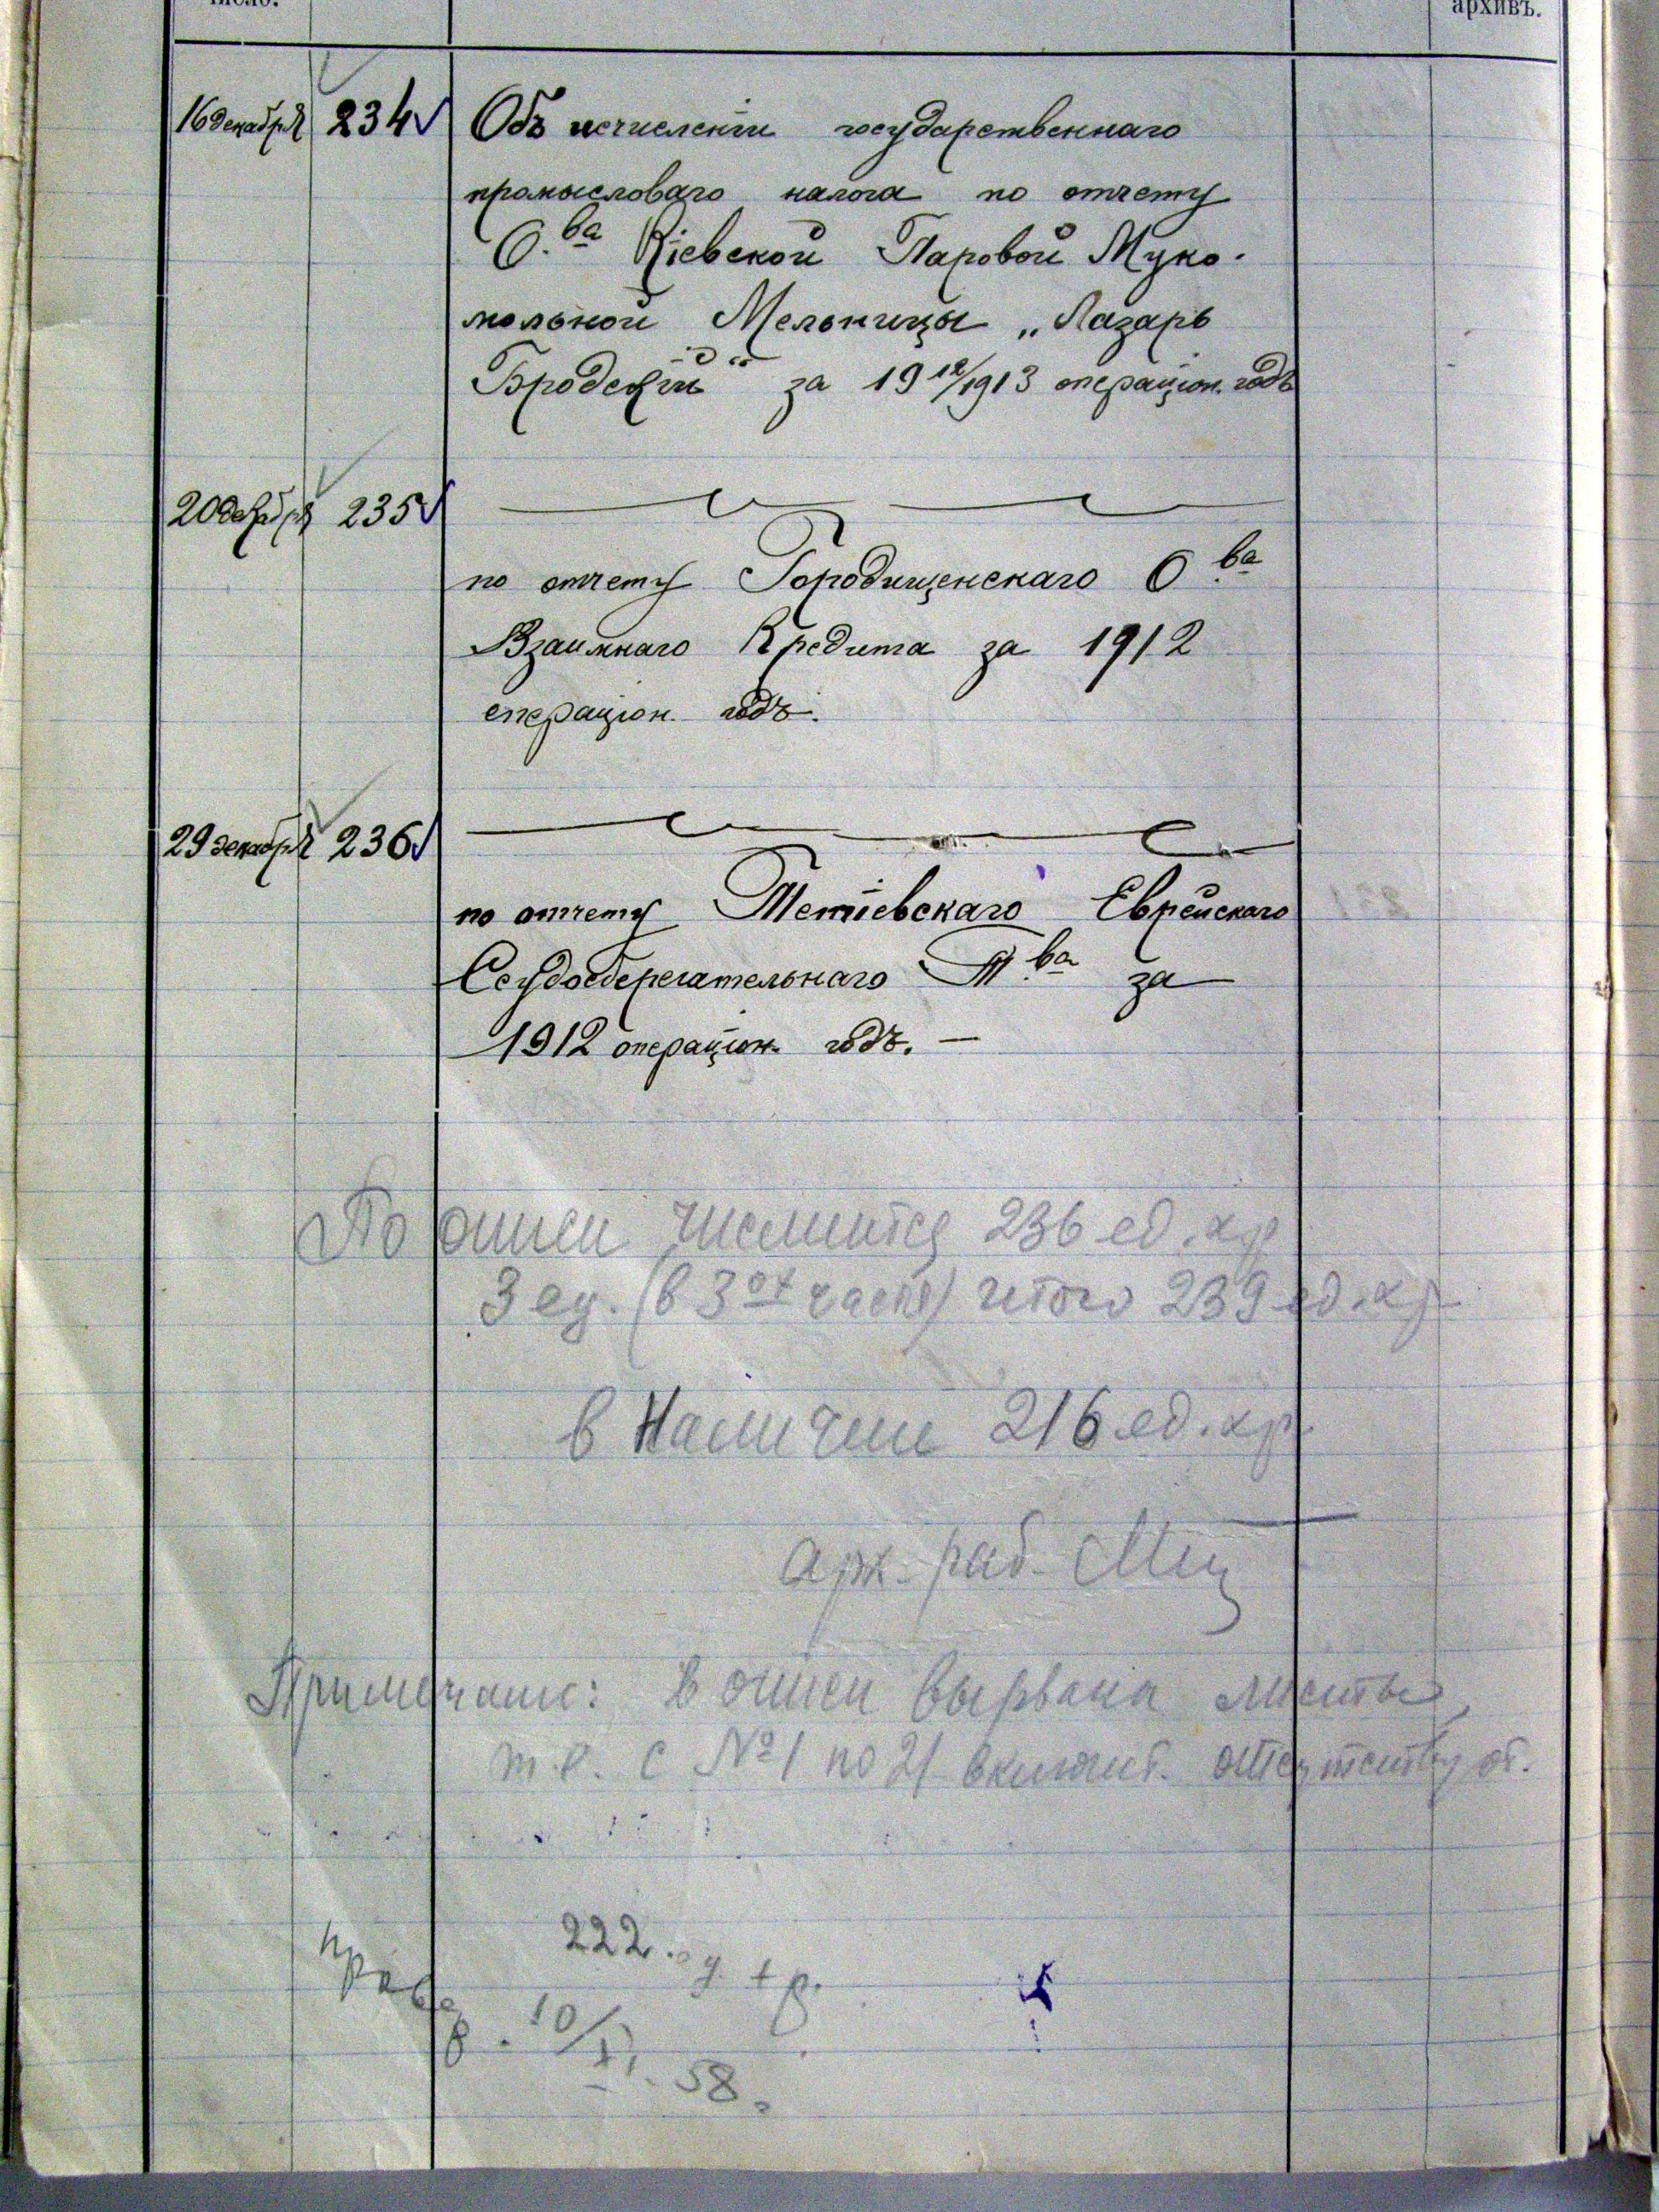 число.
архивъ.
16 декабря 234 Объ исчисленіи государственнаго
промысловаго налога по отчету
О.ва Кіевской Паровой Муко-
мольной Мельницы „Лазарь
Бродскій" за 1912/1913 операціон. годъ
20 декабря 235
по отчету Городищенскаго О.ва
Взаимнаго Кредита за 1912
операціон. годъ.
29 декабря 236
по отчету Тетіевскаго Еврейскаго
Ссудосберегательнаго Т.ва за
1912 операціон. годъ. —
По описи числится 236 ед. хр
3 ед. (в 3ей части) итого 239 ед. хр
в наличии 216 ед. хр.
Арх. раб.
Примечание: в описи вырвана листы,
т.е. с №1 по 21 включит. отсутствуют.
222
10/XI. 58.